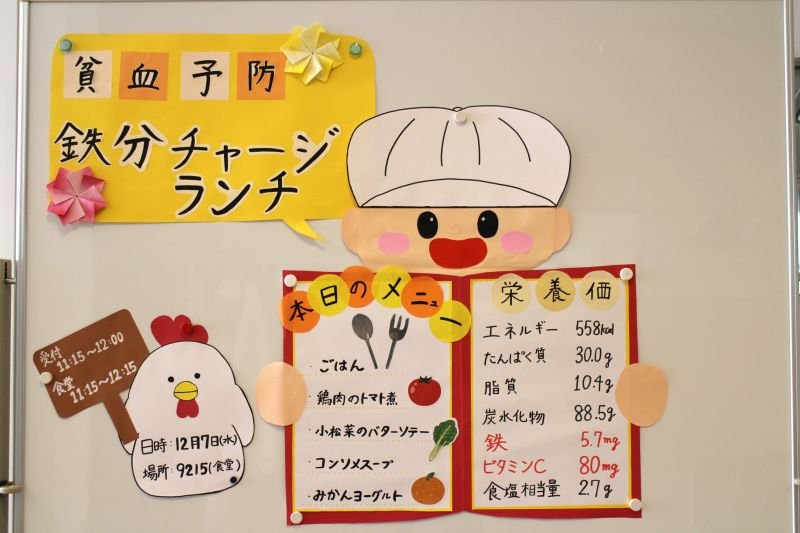 貧血予防
鉄分チャージ
ランチ
本日のメニュー
・ごはん
・鶏肉のトマト煮
・小松菜のバターソテー
・コンソメスープ
・みかんヨーグルト
栄養価
エネルギー 558kcal
たんぱく質 30.0g
脂質 10.4g
炭水化物 88.5g
鉄 5.7mg
ビタミンC 80mg
食塩相当量 2.7g
受付
11:15～12:00
食堂
11:15～12:15
日時:12月7日(水)
場所:9215(食堂)